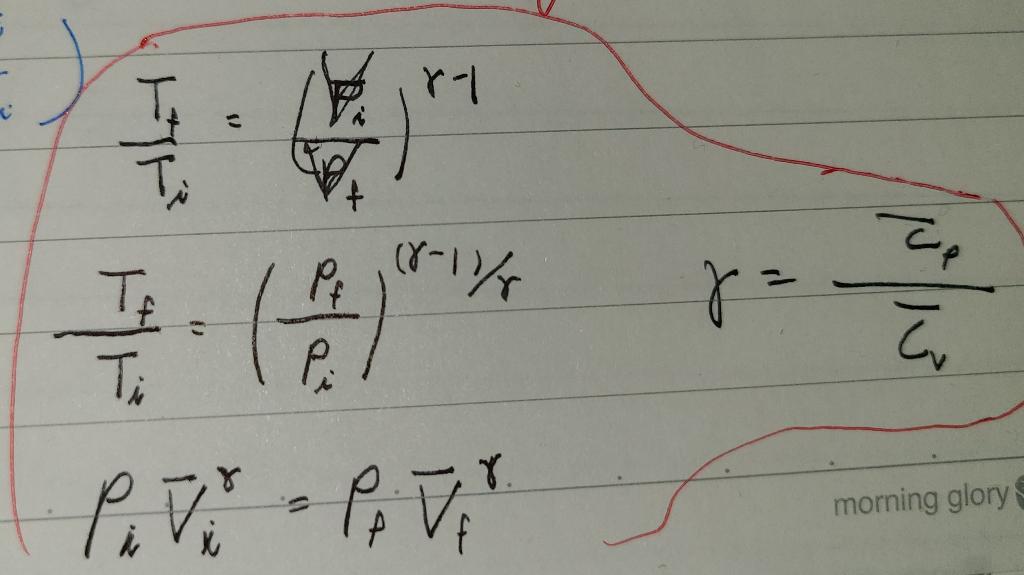 T_f / T_i = (V_i / V_f)^(γ-1)
T_f / T_i = (P_f / P_i)^((γ-1)/γ)
γ = C̅_P / C̅_V
P_i V̅_i^γ = P_f V̅_f^γ
morning glory